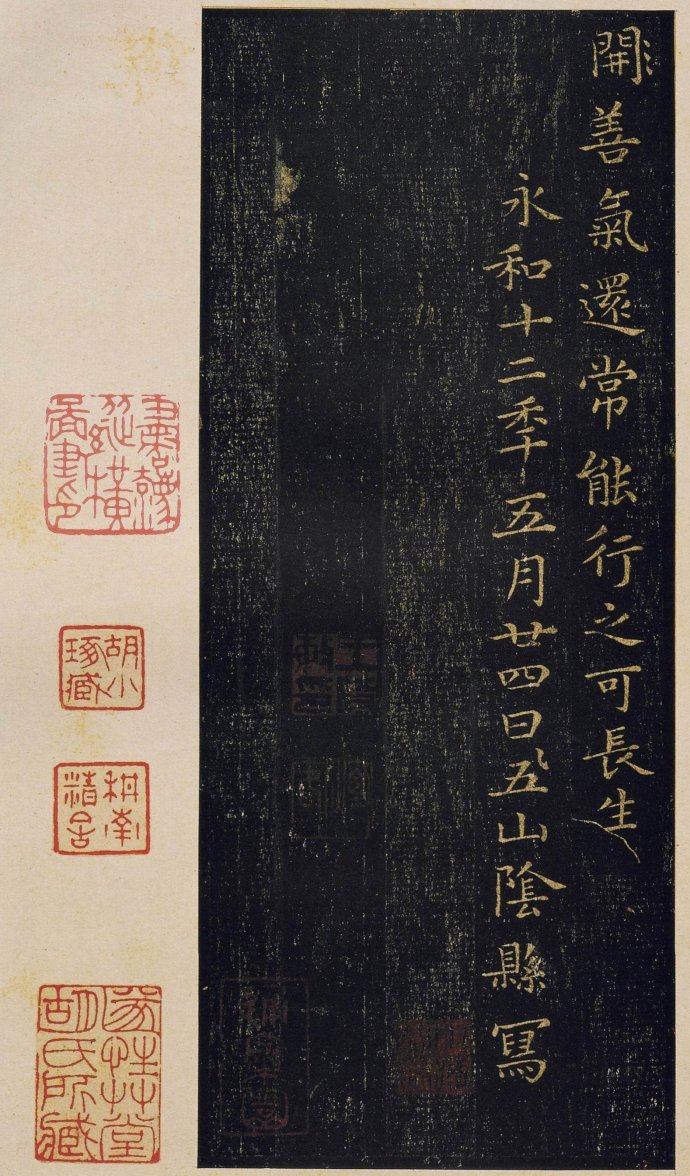 開善氣還常能行之可長生
永和十二秊五月廿四日五山陰縣寫
胡小
琢藏
胡氏所藏